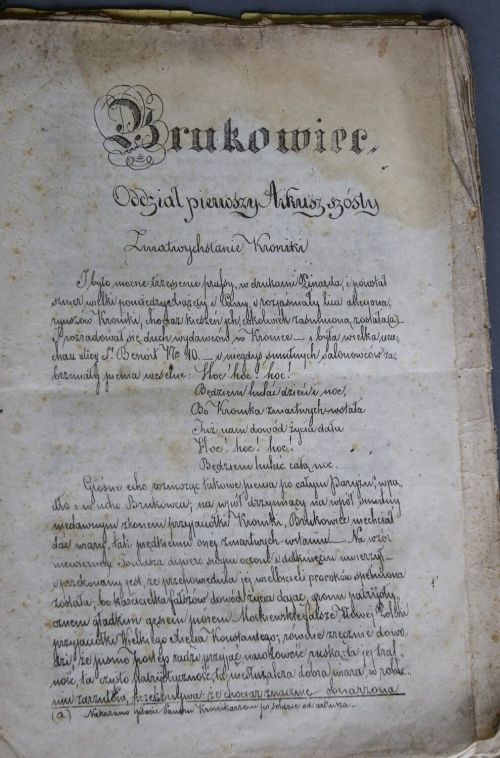 Brukowiec.
Oddział pierwszy Arkusz szósty
Zmartwychstanie Kroniki
I było mocne trzęsienie prassy, w drukarni Pinarda, i powstał
szmer wielki pomiędzy Xiążęty i Pany, i rozjaśniały lica akcyona-
ryuszów Kroniki, chociaż kieszeń ich cokolwiek zasmuconą została (a)
i rozradował się duch wydawców w Kronice — i była wielka ucie-
cha u ulicy St. Benoit No 10. — i niegdyś smutnych salonowców za-
brzmiały pienia weselne: Hoc! hoc! hoc!
Będziem hulać dzień i noc,
Bo Kronika zmartwych-wstała
Już nam dowód życia dała
Hoc! hoc! hoc!
Będziem hulać całą noc.
Głośne echo roznosząc takowe pienia po całym Paryżu, wpa-
dło i w ucho Brukowca; na wpół drzymiący na wpół smutny
niedawnym zkonem przyjaciółki Kroniki, Brukowiec niechciał
dać wiary, tak prędkiemu onej zmartwych-wstaniu — Na wzór
niewiernego Tomasza dopiero swym oczom i dotknięciu uwierzył —
i przekonany jest, że przepowiednia jej wielbicieli proroków spełnioną
została; bo Kaścicielka fałszów dowód życia dając, gromi patrijoty-
cznem gładkiem gęsiem piórem Moskiewskie fałsze Nowej Polski
przyjaciółki Wielkiego Xięcia Konstantego; równie zręcznie dowo-
dzi że pismo Postęp radzi przyjąć narodowość ruską: ta jej traf-
ność, ta czysto patrijotyczność, ta nieskazalcza dobra wiara w robie-
niu zarzutów, przekonywa: że chociaż znacznie obnażona
(a) Nakazano płacić Panom Kronikarzom po soldzie od arkusza.